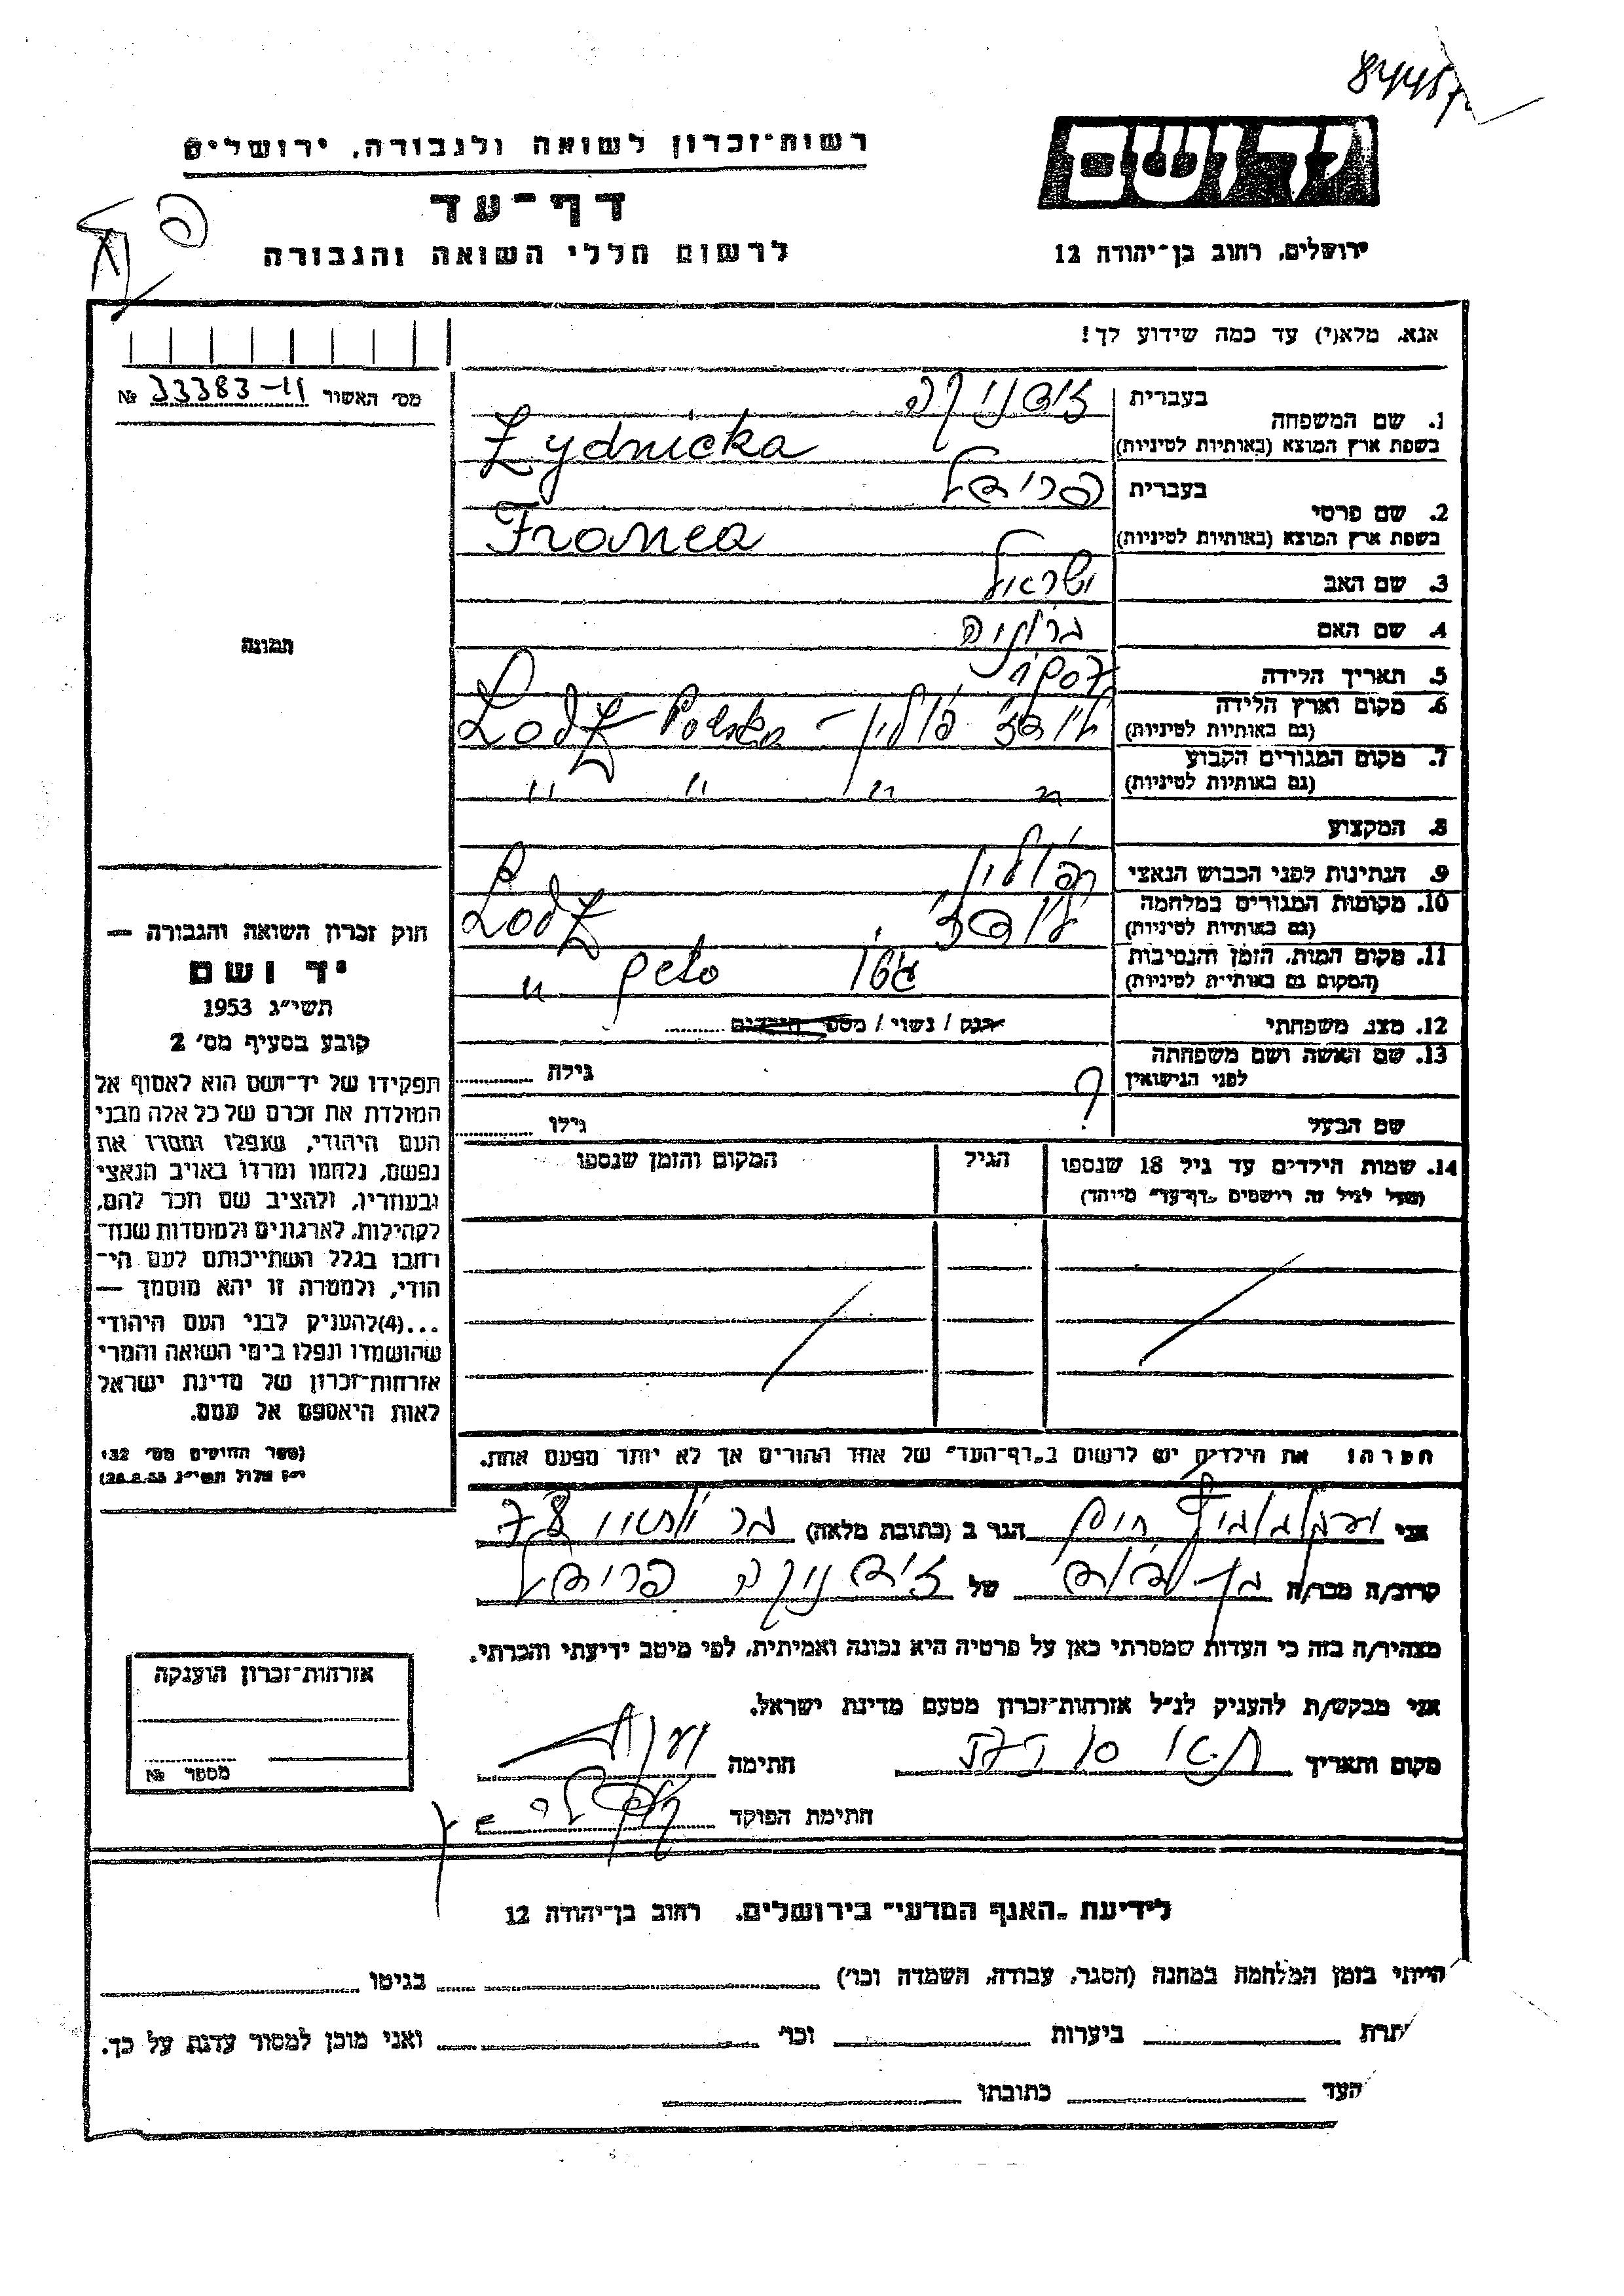 רשות־זכרון לשואה ולגבורה, ירושלים
דף־עד
לרשום חללי השואה והגבורה
ירושלים, רחוב בן־יהודה 12
אנא, מלא(י) עד כמה שידוע לך!
מס׳ האשור 33383-11 №
תמונה
1. שם המשפחה
בעברית זידניקה
בשפת ארץ המוצא (באותיות לטיניות) Zydnicka
2. שם פרטי
בעברית פרומט
בשפת ארץ המוצא (באותיות לטיניות) Franea
3. שם האב ישראל
4. שם האם
5. תאריך הלידה
6. מקום וארץ הלידה
(גם באותיות לטיניות) לודז׳ פולין – Lodz Polska
7. מקום המגורים הקבוע
(גם באותיות לטיניות) " " " "
8. המקצוע
9. הנתינות לפני הכבוש הנאצי פולין
10. מקומות המגורים במלחמה
(גם באותיות לטיניות) לודז׳, Lodz
11. מקום המות, הזמן והנסיבות
(המקום גם באותיות לטיניות) גטו geto "
12. מצב משפחתי רווק / נשוי / מספר הילדים
13. שם האשה ושם משפחתה
לפני הנישואין ? גילה
שם הבעל גילו
14. שמות הילדים עד גיל 18 שנספו הגיל המקום והזמן שנספו
(מעל לגיל זה רישמים „דף־עד" מיוחד)
חוק זכרון השואה והגבורה —
יד ושם
תשי״ג 1953
קובע בסעיף מס׳ 2
תפקידו של יד־ושם הוא לאסוף אל
המולדת את זכרם של כל אלה מבני
העם היהודי, שנפלו ומסרו את
נפשם, נלחמו ומרדו באויב הנאצי
ובעוזריו, ולהציב שם וזכר להם,
לקהילות, לארגונים ולמוסדות שנח־
רבו בגלל השתייכותם לעם הי־
הודי, ולמטרה זו יהא מוסמך —
...(4)להעניק לבני העם היהודי
שהושמדו ונפלו בימי השואה והמרי
אזרחות־זכרון של מדינת ישראל
לאות היאספם אל עמם.
(ספר החוקים מס׳ 132
י״ז אלול תשי״ג 28.8.53)
הערה! את הילדים יש לרשום ב„דף־העד" של אחד ההורים אך לא יותר מפעם אחת.
אני חיים הגר ב (כתובת מלאה)
קרוב/ה מכר/ה בן־דוד של זידניקה פרומט
מצהיר/ה בזה כי העדות שמסרתי כאן על פרטיה היא נכונה ואמיתית, לפי מיטב ידיעתי והכרתי.
אני מבקש/ת להעניק לנ״ל אזרחות־זכרון מטעם מדינת ישראל.
מקום ותאריך חתימה
חתימת הפוקד
אזרחות־זכרון הוענקה
מספר №
לידיעת „האגף המדעי" בירושלים, רחוב בן־יהודה 12
הייתי בזמן המלחמה במחנה (הסגר, עבודה, השמדה וכו׳) בגיטו
ביערות וכו׳ ואני מוכן למסור עדות על כך.
העד כתובתו